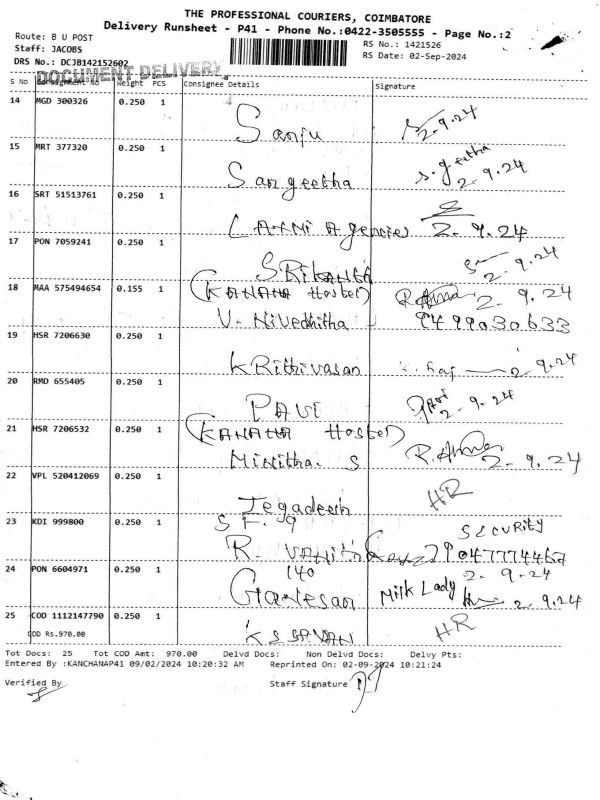 THE PROFESSIONAL COURIERS, COIMBATORE
Delivery Runsheet - P41 - Phone No.:0422-3505555 - Page No.:2
Route: B U POST
Staff: JACOBS
RS No.: 1421526
DRS No.: DCJB142152602
RS Date: 02-Sep-2024
DOCUMENT DELIVERY
S No Consignment No Weight PCS Consignee Details Signature
14 MGD 300326 0.250 1 Sanju 2.9.24
15 MRT 377320 0.250 1 Sangeetha S.geetha 2.9.24
16 SRT 51513761 0.250 1 Laxmi Agencies 2.9.24
17 PON 7059241 0.250 1 SRikanta 2.9.24
18 MAA 575494654 0.155 1 (KANANA Hostel) 2.9.24
V. Nivedhitha 9499030633
19 HSR 7206630 0.250 1 KRithivasan 2.9.24
20 RMD 655405 0.250 1 PAVI Pavi 2.9.24
21 HSR 7206532 0.250 1 (KANANA Hostel)
Minitha. S 2.9.24
22 VPL 520412069 0.250 1 Jegadeesh HR
23 KDI 999800 0.250 1 S F. 9 SECURITY
R. 79047774467
24 PON 6604971 0.250 1 140 2.9.24
Ganesan Milk Lady 2.9.24
25 COD 1112147790 0.250 1 HR
COD Rs.970.00
Tot Docs: 25 Tot COD Amt: 970.00 Delvd Docs: Non Delvd Docs: Delvy Pts:
Entered By :KANCHANAP41 09/02/2024 10:20:32 AM Reprinted On: 02-09-2024 10:21:24
Verified By Staff Signature